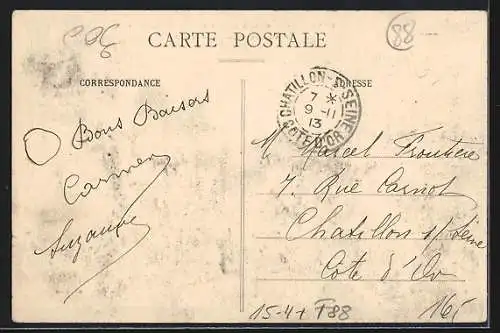 88
CARTE POSTALE
CORRESPONDANCE
ADRESSE
CHATILLON-S-SEINE
7 *
9 -11
13
COTE D'OR
Bons Baisers
Carmen
Suzanne
M Marcel
7. Rue Carnot
Chatillon s/ Seine
Côte d'Or
15-4+ F88
165